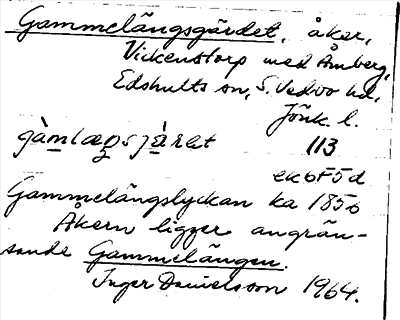 Gammelängsgärdet, åker,
Vickenstorp med Åmberg,
Edshults sn, S. Vedbo hd,
Jönk. l.
113
ek 6F5d
Gammelängslyckan ka 1856
Åkern ligger angrän-
sande Gammelängen.
Inger Danielsson 1964.